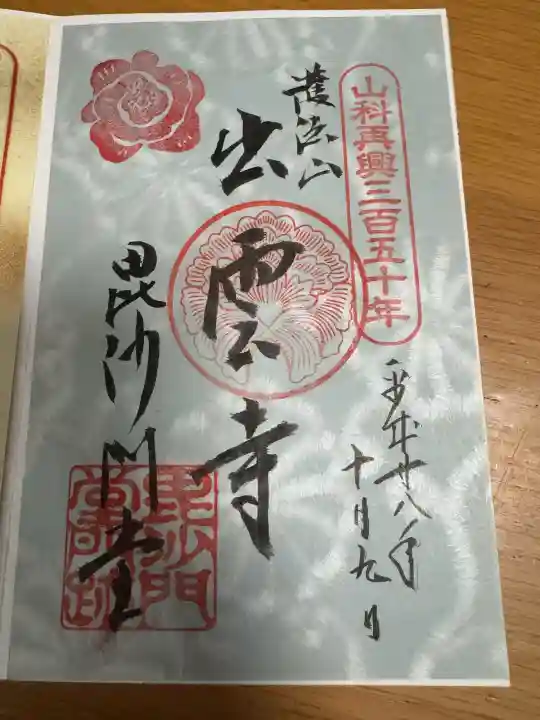 山科再興三百五十年
平成廿八年
十月九日
護法山
出雲寺
毘沙門堂